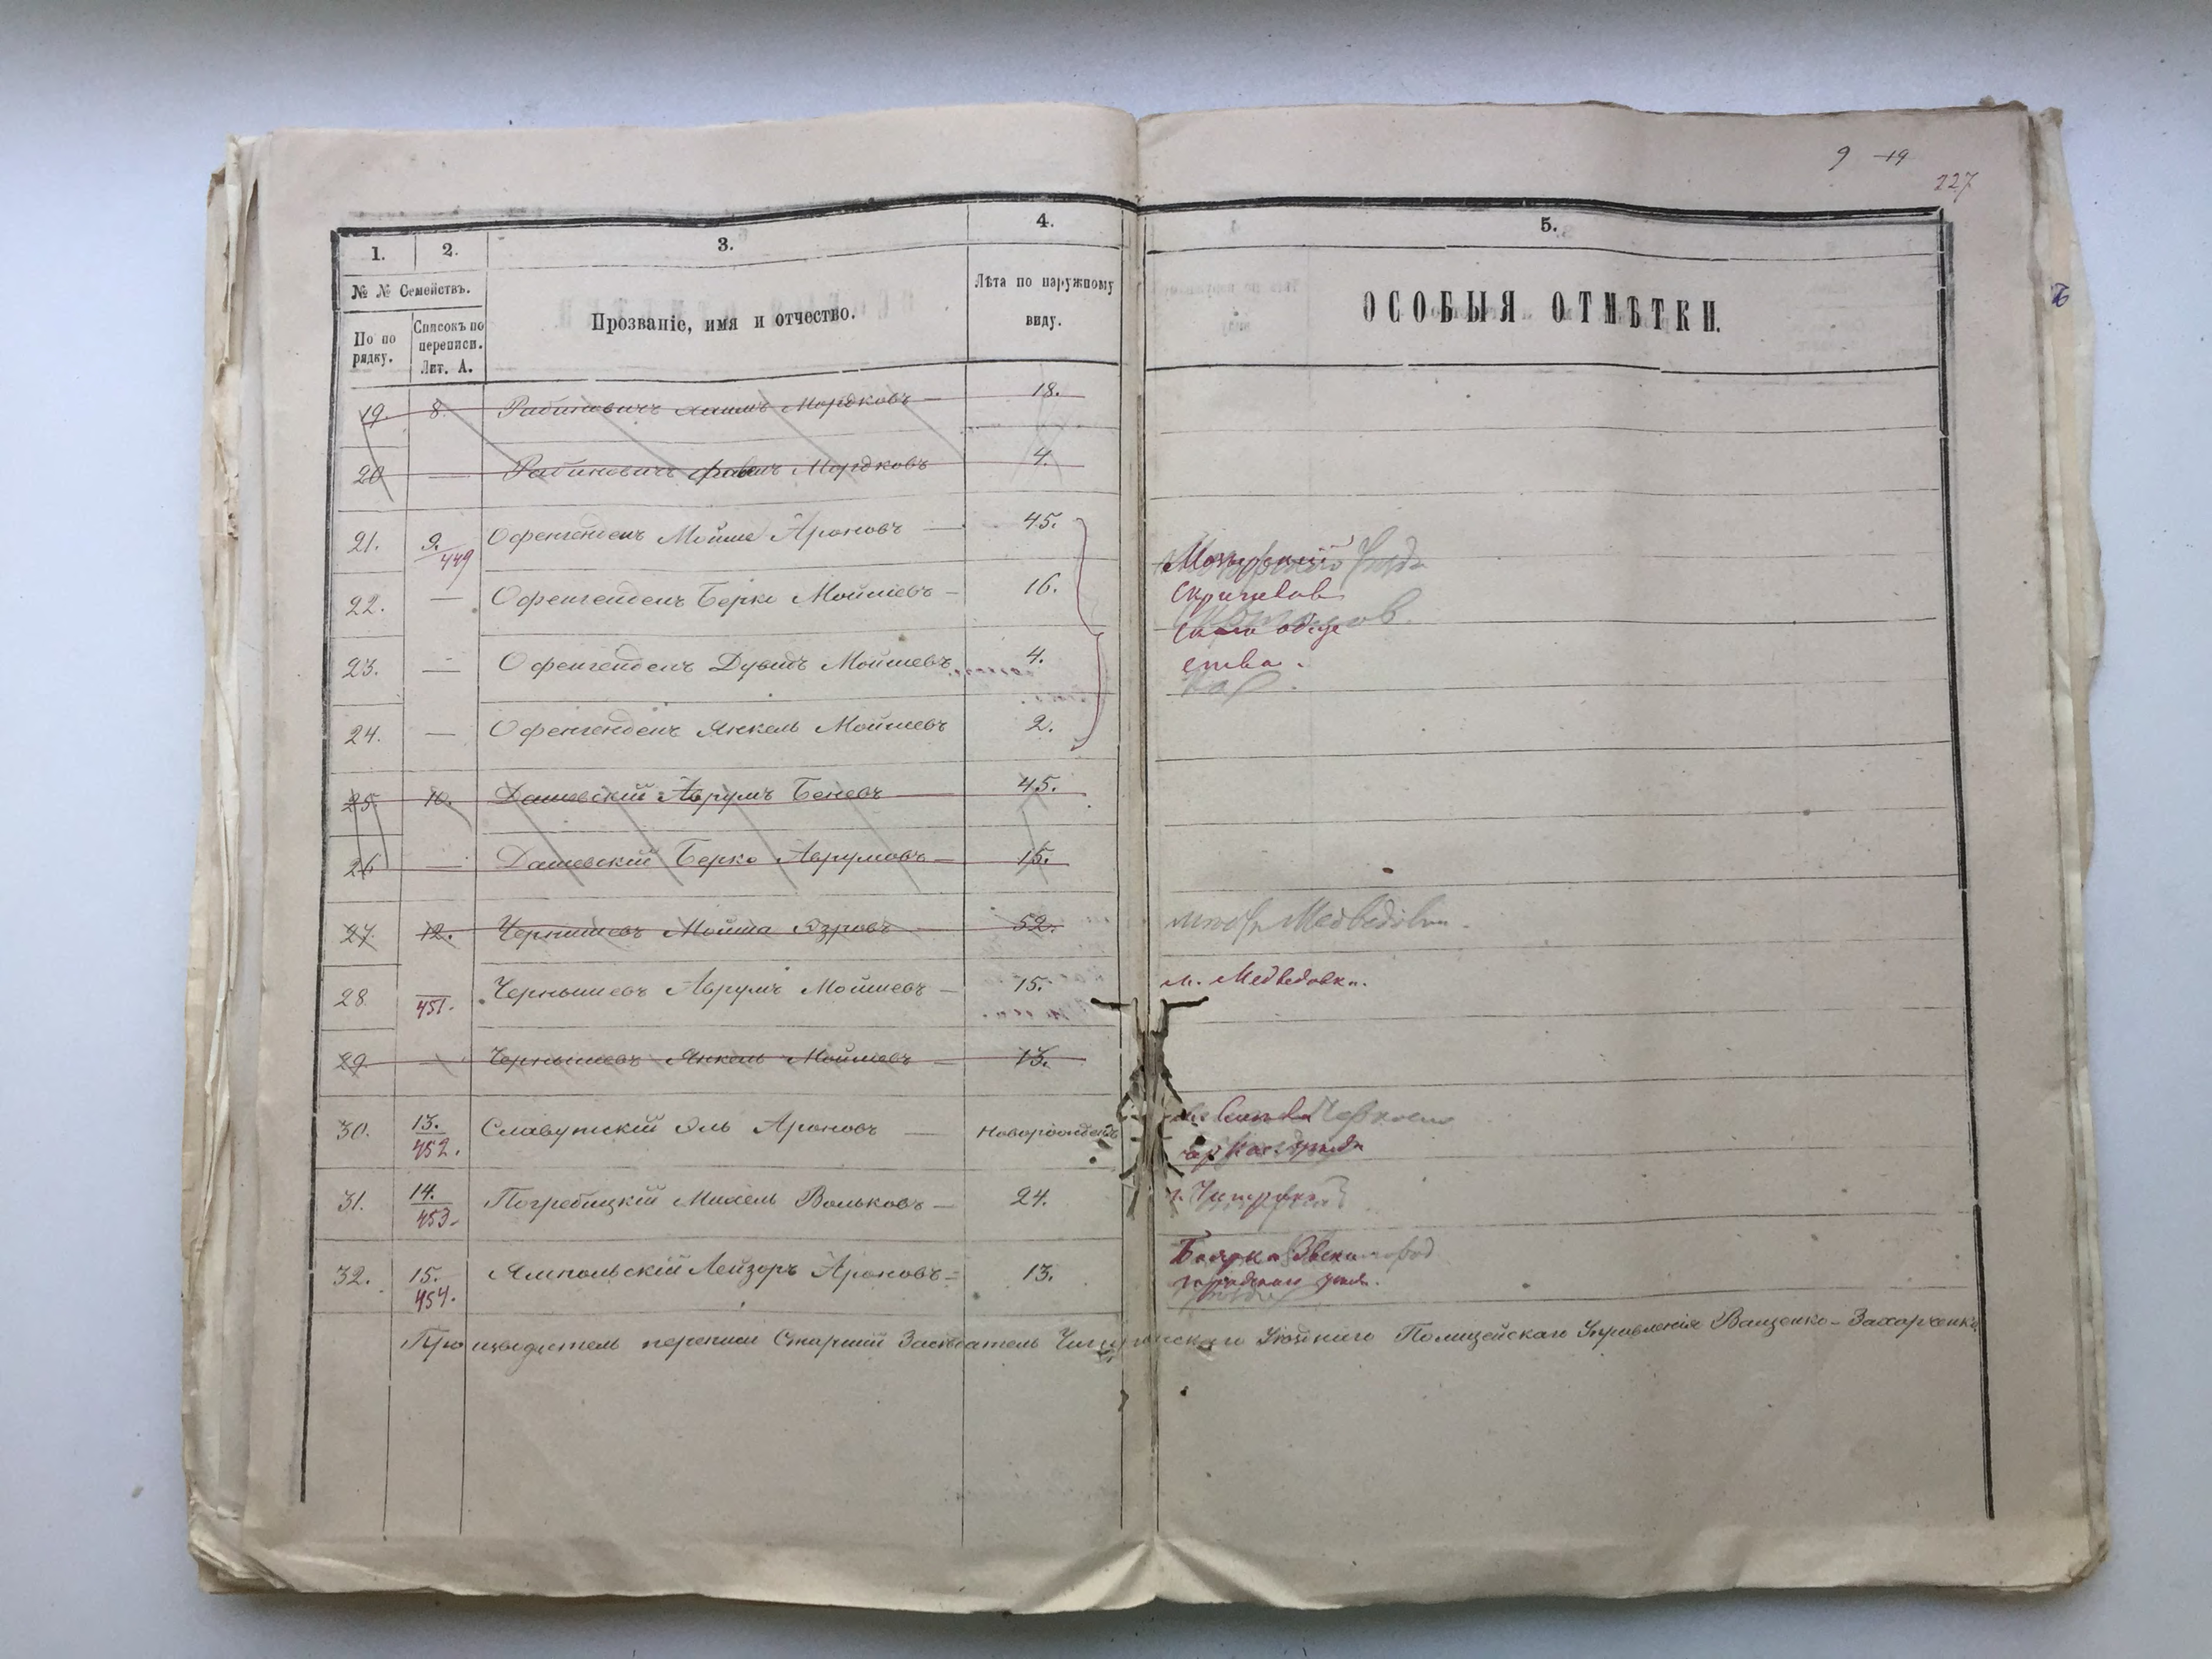 9 19
227
1. 2. 3. 4. 5.
№ № Семействъ.
По порядку.
Списокъ по переписи. Лит. А.
Прозваніе, имя и отчество.
Лѣта по наружному виду.
ОСОБЫЯ ОТМѢТКИ.
19. 8. Рабиновичъ Мордковъ 18.
20 — Рабиновичъ Мордковъ 4.
21. 9./449 Офенгенденъ Мойше Ароновъ — 45.
22. — Офенгенденъ Берко Мойшевъ — 16.
23. — Офенгенденъ Дувидъ Мойшевъ 4.
24. — Офенгенденъ Янкель Мойшевъ 2.
25. 10. Дашевскій Аврумъ Беневъ — 45.
26 — Дашевскій Берко Аврумовъ — 15.
27. 12. Чернышевъ Мойша — 52. Медведовки
28. — 451. Чернышевъ Аврумъ Мойшевъ — 15. м. Медведовки.
29. — Чернышевъ Янкель Мойшевъ — 13.
30. 13./452. Славутскій Эль Ароновъ — Новорожденъ
31. 14./453. Погребицкій Михель Вольковъ — 24.
32. 15./454. Ямпольскій Лейзоръ Ароновъ = 13. Боярка
Производитель переписи Старшій Засѣдатель Чигиринскаго Уѣзднаго Полицейскаго Управленія Ващенко-Захарченко